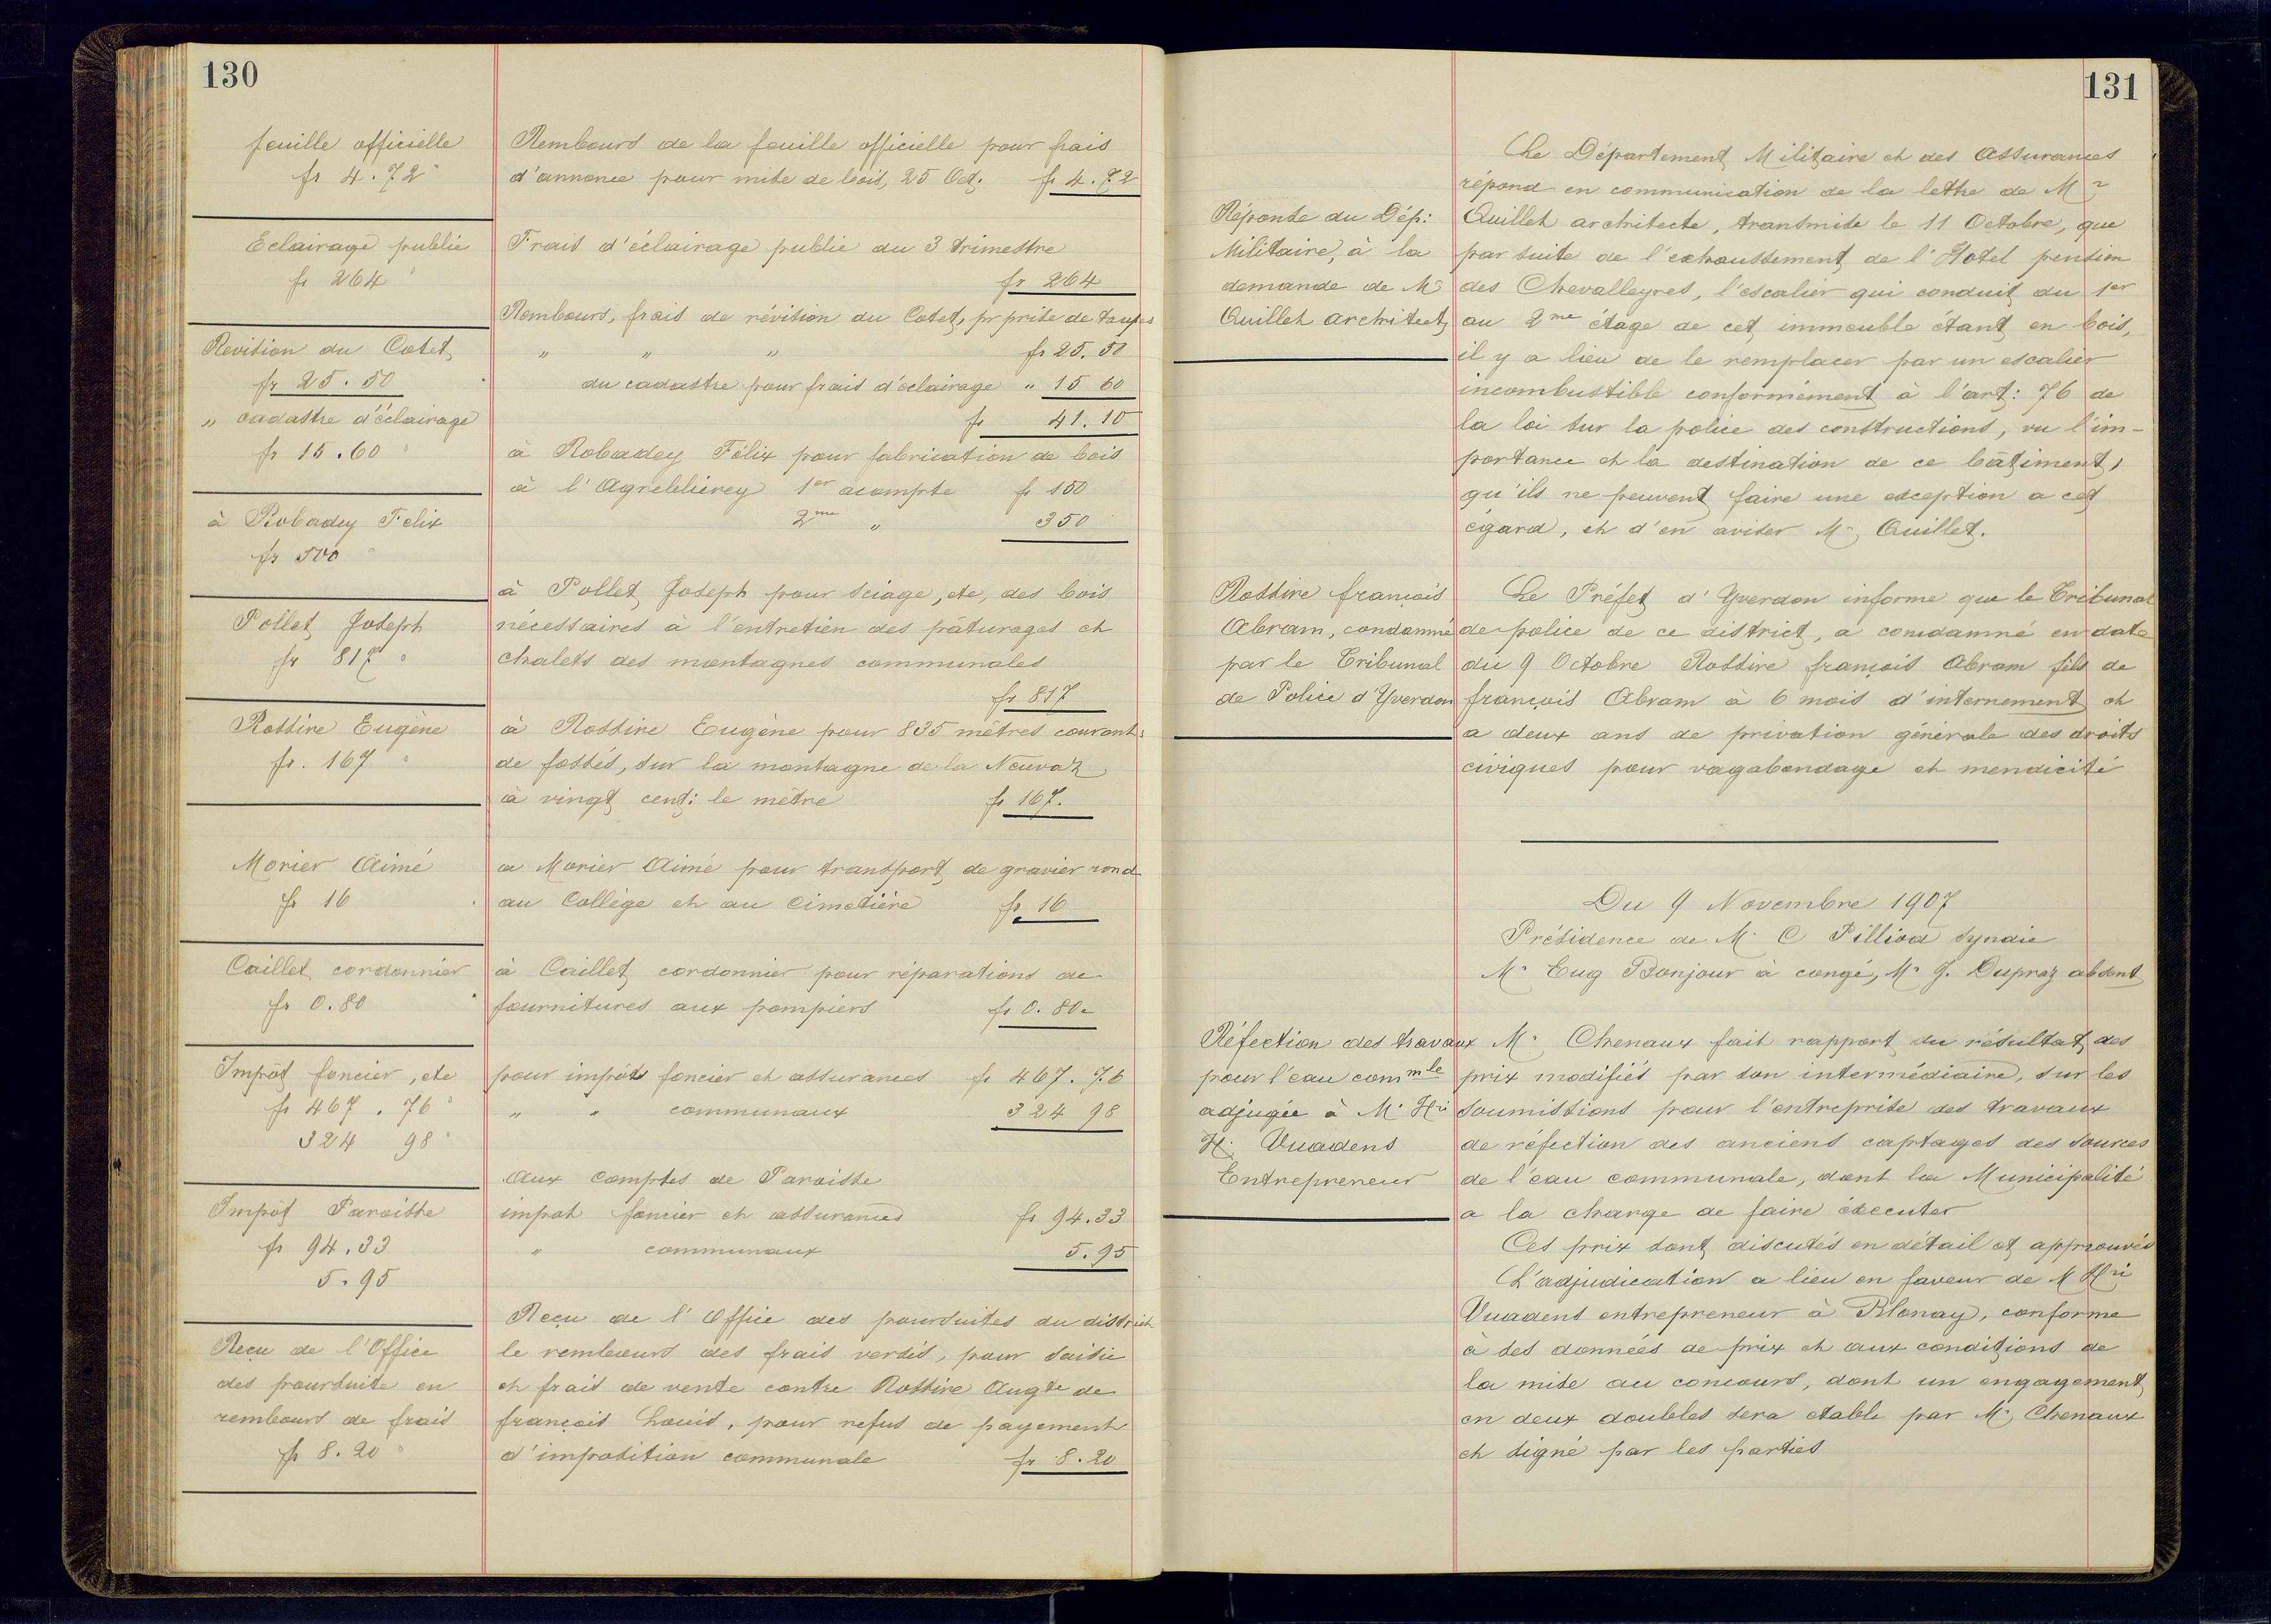 130
feuille officielle
fr 4.72
Rembours de la feuille officielle pour frais
d'annonce pour mise de bois, 25 Oct. fr 4.72
Eclairage public
fr 264
Frais d'éclairage public du 3 trimestre
fr 264
Revision du Cotet
fr 25.50
" cadastre d'éclairage
fr 15.60
Rembours, frais de révision du Cotet, pr prise de taupes
" " " fr 25.50
du cadastre pour frais d'éclairage " 15 60
fr 41.10
à Robadey Felix
fr 500
à Robadey Félix pour fabrication de bois
à l'Agreblierey 1er acompte fr 150
2me " 350
Pollet Joseph
fr 817
à Pollet Joseph pour sciage, etc, des bois
nécessaires à l'entretien des pâturages et
chalets des montagnes communales
fr 817
Rossire Eugène
fr. 167
à Rossire Eugène pour 835 mètres courants
de fossés, sur la montagne de la Neuvaz
à vingt cent: le mètre fr 167.
Morier Aimé
fr 16
a Morier Aimé pour transport de gravier rond
au Collège et au Cimetière fr 16
Caillet cordonnier
fr 0.80
à Caillet cordonnier pour réparations de
fournitures aux pompiers fr 0.80
Impôt foncier, etc
fr 467.76
324 98
pour impôts foncier et assurances fr 467.76
" " communaux 324 98
Impôt Paroisse
fr 94.33
5.95
Aux Comptes de Paroisse
impot foncier et assurances fr 94.33
" communaux 5.95
Reçu de l'Office
des poursuite en
rembours de frais
fr 8.20
Reçu de l'Office des poursuites du district
le rembours des frais versés, pour saisie
et frais de vente contre Rossire Augte de
françois Louis, pour refus de payement
d'imposition communale fr 8.20
131
Réponse du Dép:
Militaire, à la
demande de Mr
Quillet architect
Le Département Militaire et des Assurances
répond en communication de la lettre de Mr
Quillet architecte, transmise le 11 Octobre, que
par suite de l'exhaussement de l'Hotel pension
des Chevalleyres, l'escalier qui conduit du 1er
au 2me étage de cet immeuble étant en bois,
il y a lieu de le remplacer par un escalier
incombustible conformément à l'art: 76 de
la loi sur la police des constructions, vu l'im-
portance et la destination de ce bâtiment,
qu'ils ne peuvent faire une exception a cet
égard, et d'en aviser Mr Quillet.
Rossire françois
Abram, condamné
par le Tribunal
de Police d'Yverdon
Le Préfet d'Yverdon informe que le Tribunal
de police de ce district, a condamné en date
du 9 Octobre Rossire françois Abram fils de
françois Abram à 6 mois d'internement et
a deux ans de privation générale des droits
civiques pour vagabondage et mendicité
Du 9 Novembre 1907
Présidence de Mr C Pilliod Syndic
Mr Eug Bonjour à congé, Mr J. Dupraz absent
Réfection des travaux
pour l'eau commle
adjugée à Mr Hri
H. Vuadens
Entrepreneur
Mr Chenaux fait rapport du résultat des
prix modifiés par son intermédiaire, sur les
soumissions pour l'entreprise des travaux
de réfection des anciens captages des sources
de l'eau communale, dont la Municipalité
a la charge de faire éxecuter
Ces prix sont discutés en détail et approuvés
L'adjudication a lieu en faveur de M Hri
Vuadens entrepreneur à Blonay, conforme
à ses données de prix et aux conditions de
la mise au concours, dont un engagement
en deux doubles sera etable par Mr Chenaux
et signé par les parties